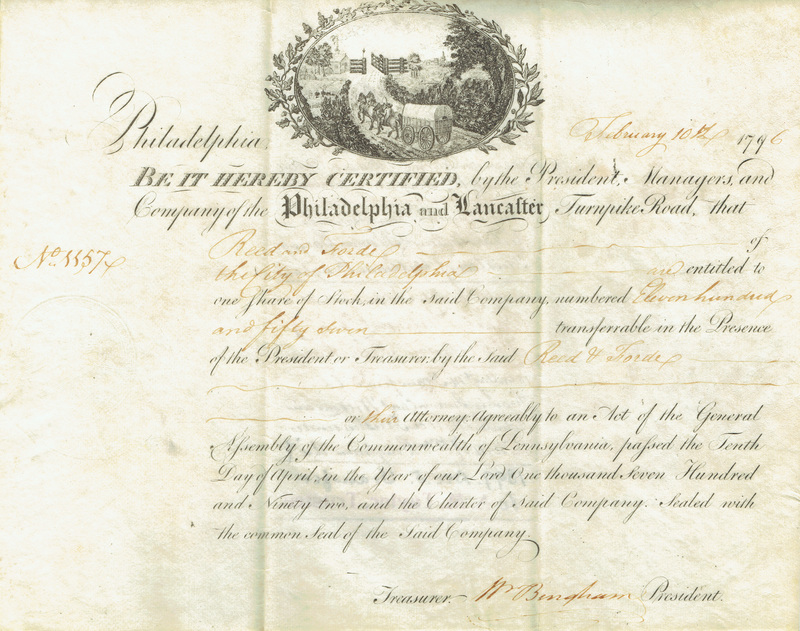 Philadelphia, February 10th 1796
BE IT HEREBY CERTIFIED, by the President, Managers, and
Company of the Philadelphia and Lancaster Turnpike Road, that
Reed and Forde of
No. 1157
the City of Philadelphia are entitled to
one Share of Stock, in the Said Company, numbered Eleven hundred
and fifty seven transferrable in the Presence
of the President or Treasurer, by the Said Reed & Forde
or their Attorney. Agreeably to an Act of the General
Assembly of the Commonwealth of Pennsylvania, passed the Tenth
Day of April, in the Year of our Lord One thousand Seven Hundred
and Ninety two, and the Charter of Said Company. Sealed with
the common Seal of the Said Company.
Treasurer. Wm Bingham President.